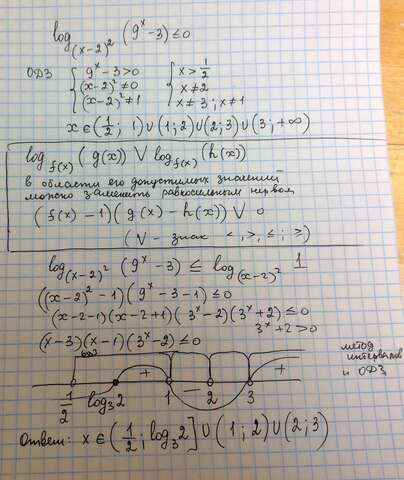 log₍ₓ₋₂₎² (9ˣ-3) ≤ 0
ОДЗ { 9ˣ-3>0 { x > 1/2
(x-2)² ≠ 0 x ≠ 2
(x-2)² ≠ 1 x ≠ 3 ; x ≠ 1
x ∈ (1/2; 1) ∪ (1; 2) ∪ (2; 3) ∪ (3; +∞)
log_f(x) (g(x)) ∨ log_f(x) (h(x))
в области его допустимых значений
можно заменить равносильным нервом
(f(x) - 1)(g(x) - h(x)) ∨ 0
(∨ - знак <, >, ≤; ≥)
log₍ₓ₋₂₎² (9ˣ-3) ≤ log₍ₓ₋₂₎² 1
((x-2)² - 1)(9ˣ-3-1) ≤ 0
(x-2-1)(x-2+1)(3ˣ-2)(3ˣ+2) ≤ 0
3ˣ+2>0
(x-3)(x-1)(3ˣ-2) ≤ 0
метод
интервалов
и ОДЗ
одз
+ - +
1/2 log₃2 1 2 3
Ответ: x ∈ (1/2; log₃2] ∪ (1; 2) ∪ (2; 3)